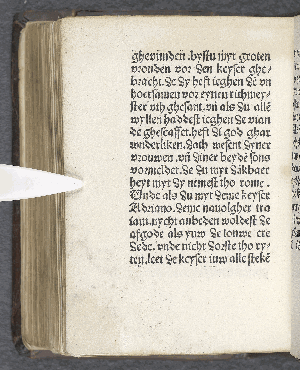 ghevunden. bystu myt groten
vrouden vor den keyser ghe/
bracht. de dy heft ieghen de vn
horsamen vor eynen richtmey/
ster vth ghesant. vn als du alle
wyllen haddest ieghen de vian
de gheschaffet. heft di god ghar
wnderliken. dath wesent dyner
vrouwen. vn diner beyde sons
vormeldet. de du myt dākbaer
heyt myt dy nemest tho rome.
Unde als du myt deme keyser
Adriano. deme nauolgher tra
iani. nycht anbeden woldest de
afgode als yuw de louwe ere
dede. vnde nicht dorste tho ry/
ten. leet de keyser iuw alle steke